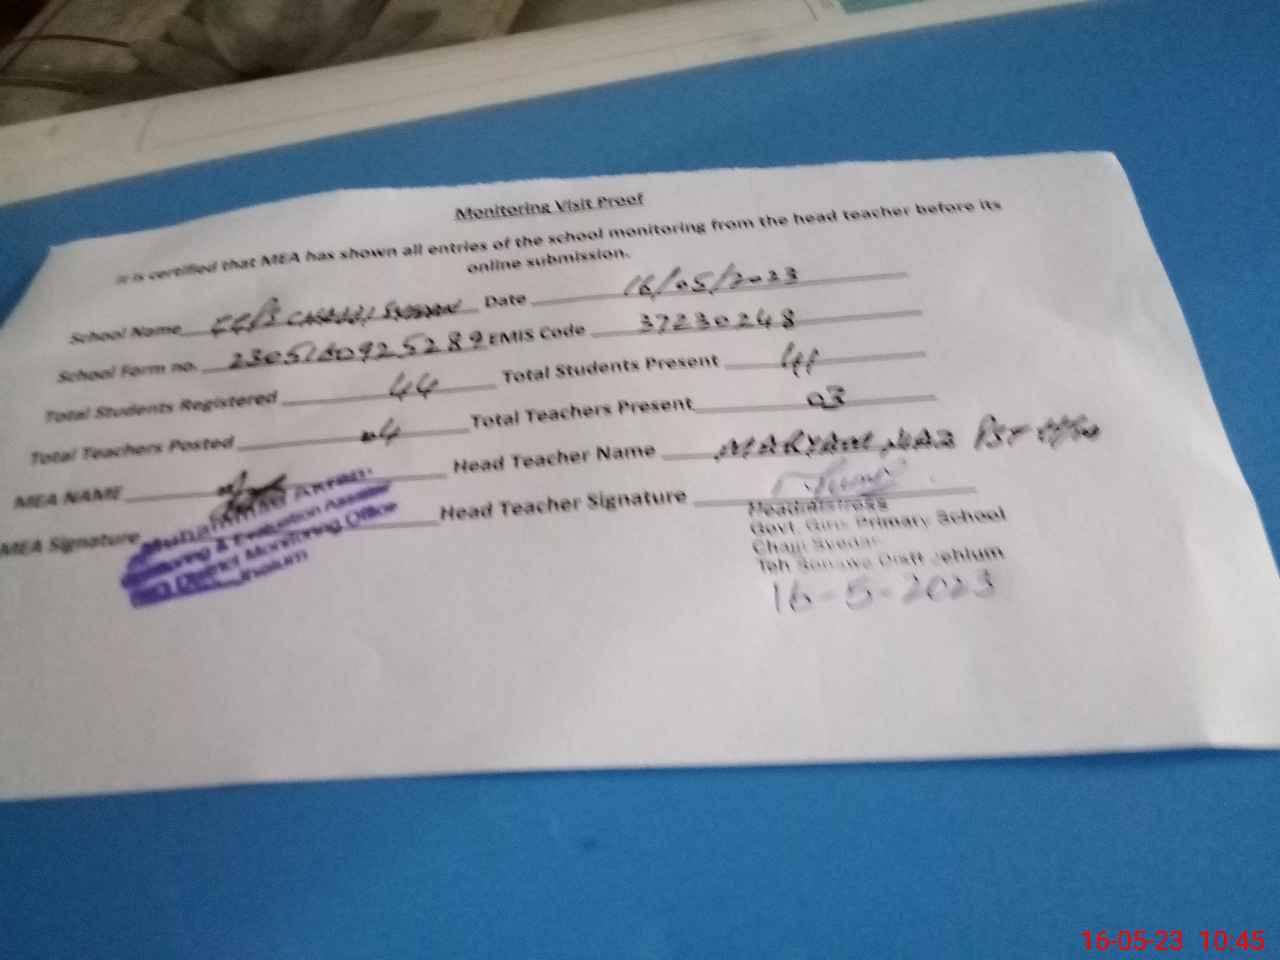 Monitoring Visit Proof
It is certified that MEA has shown all entries of the school monitoring from the head teacher before its
online submission.
School Name Date 16/05/2023
School Form no. EMIS Code 37230248
Total Students Registered 44 Total Students Present 41
Total Teachers Posted 04 Total Teachers Present 03
MEA NAME Head Teacher Name
MEA Signature Head Teacher Signature
Muhammad Akram
Monitoring & Evaluation Assistant
District Monitoring Office
Jhelum
Headmistress
Govt. Girls Primary School
Chajji Syedan
Teh Sohawa Distt Jehlum
16-5-2023
16-05-23 10:45